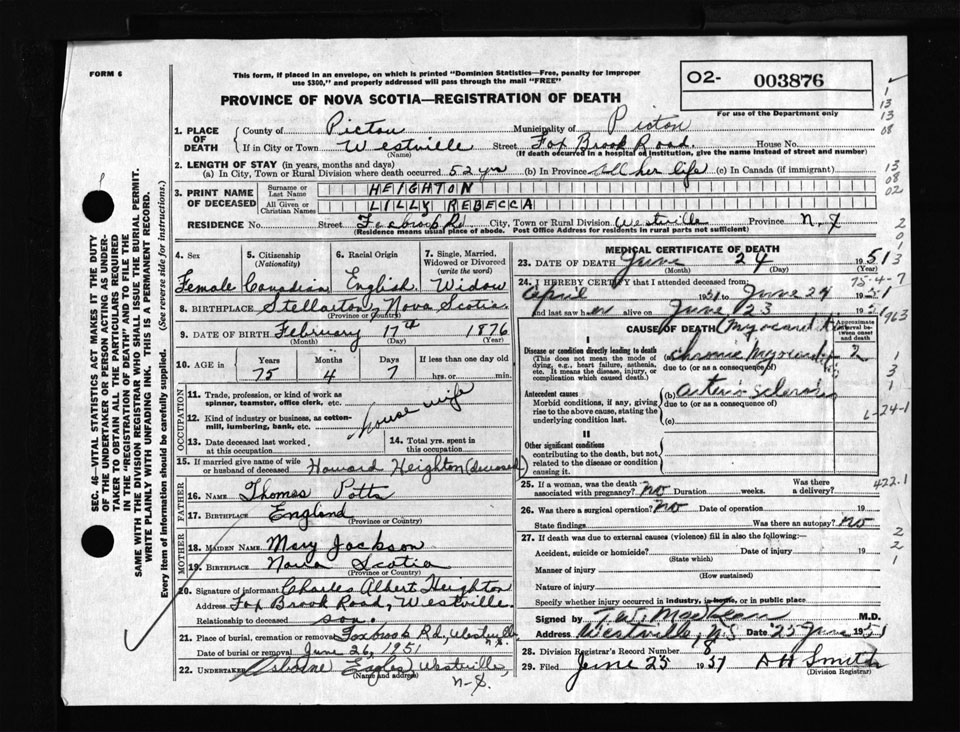 FORM 6
This form, if placed in an envelope, on which is printed "Dominion Statistics—Free, penalty for improper
use $300," and properly addressed will pass through the mail "FREE"
O2- 003876
For use of the Department only
PROVINCE OF NOVA SCOTIA—REGISTRATION OF DEATH
1. PLACE OF DEATH
County of Pictou Municipality of Pictou
If in City or Town Westville Street Fox Brook Road. House No.
(Name) (If death occurred in a hospital or institution, give the name instead of street and number)
2. LENGTH OF STAY (in years, months and days)
(a) In City, Town or Rural Division where death occurred 52 yrs (b) In Province all her life (c) In Canada (if immigrant)
3. PRINT NAME OF DECEASED
Surname or Last Name HEIGHTON
All Given or Christian Names LILLY REBECCA
RESIDENCE No. Street Foxbrook Rd City, Town or Rural Division Westville Province N.S
(Residence means usual place of abode. Post Office Address for residents in rural parts not sufficient)
4. Sex 5. Citizenship (Nationality) 6. Racial Origin 7. Single, Married, Widowed or Divorced (write the word)
Female Canadian English Widow
8. BIRTHPLACE Stellarton, Nova Scotia
(Province or Country)
9. DATE OF BIRTH February 17th 1876
(Month) (Day) (Year)
10. AGE in Years Months Days If less than one day old
75 4 7 hrs. or min.
OCCUPATION
11. Trade, profession, or kind of work as spinner, teamster, office clerk, etc.
house wife
12. Kind of industry or business, as cotton-mill, lumbering, bank, etc.
13. Date deceased last worked at this occupation
14. Total yrs. spent in this occupation
15. If married give name of wife or husband of deceased Howard Heighton (deceased)
FATHER
16. NAME Thomas Potts
17. BIRTHPLACE England
(Province or Country)
MOTHER
18. MAIDEN NAME Mary Jackson
19. BIRTHPLACE Nova Scotia
(Province or Country)
20. Signature of informant Charles Albert Heighton
Address Fox Brook Road, Westville.
Relationship to deceased son.
21. Place of burial, cremation or removal Foxbrook Rd, Westville N.S.
Date of burial or removal June 26, 1951
22. UNDERTAKER Osborne Eagles Westville, N.S.
(Name and address)
MEDICAL CERTIFICATE OF DEATH
23. DATE OF DEATH June 24 1951
(Month) (Day) (Year)
24. I HEREBY CERTIFY that I attended deceased from:
April 1951 to June 24 1951
and last saw her alive on June 23 1951
CAUSE OF DEATH
Approximate interval between onset and death
I
Disease or condition directly leading to death
(This does not mean the mode of dying, e.g., heart failure, asthenia, etc. It means the disease, injury, or complication which caused death.)
(a) Chronic 2
due to (or as a consequence of)
Antecedent causes
Morbid conditions, if any, giving rise to the above cause, stating the underlying condition last.
(b) arterio sclerosis
due to (or as a consequence of)
(c)
II
Other significant conditions
contributing to the death, but not related to the disease or condition causing it.
25. If a woman, was the death associated with pregnancy? no Duration weeks. Was there a delivery?
26. Was there a surgical operation? no Date of operation 19
State findings Was there an autopsy? no
27. If death was due to external causes (violence) fill in also the following:—
Accident, suicide or homicide? Date of injury 19
(State which)
Manner of injury
(How sustained)
Nature of injury
Specify whether injury occurred in industry, in home, or in public place
Signed by T.W. MacLean M.D.
Address Westville, N.S. Date 25 June 1951
28. Division Registrar's Record Number 8
29. Filed June 25 1951 D H Smith
(Division Registrar)
SEC. 46—VITAL STATISTICS ACT MAKES IT THE DUTY
OF THE UNDERTAKER OR PERSON ACTING AS UNDER-
TAKER TO OBTAIN ALL THE PARTICULARS REQUIRED
IN THE "REGISTRATION OF DEATH" AND TO FILE THE
SAME WITH THE DIVISION REGISTRAR WHO SHALL ISSUE THE BURIAL PERMIT.
WRITE PLAINLY WITH UNFADING INK. THIS IS A PERMANENT RECORD.
Every item of information should be carefully supplied. (See reverse side for instructions.)
1
13
13
08
13
08
02
2
0
1
3
75-4-7
963
1
3
1
L-24-1
422.1
2
2
1